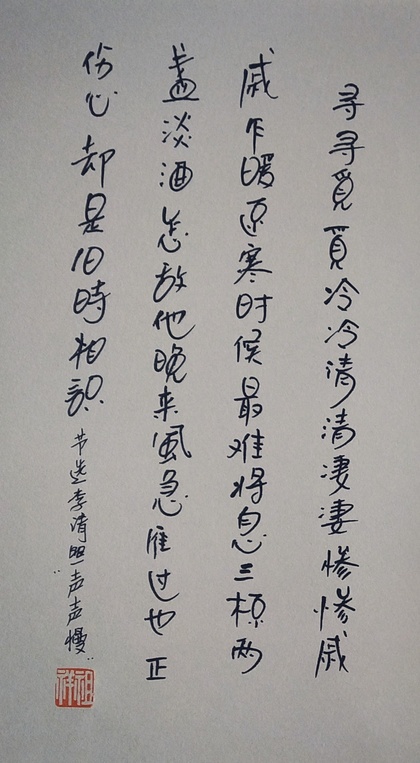 寻寻覓覓冷冷清清凄凄惨惨戚
戚乍暖还寒时候最难将息三杯两
盏淡酒怎敌他晚来風急雁过也正
伤心却是旧時相识
节选李清照“声声慢”
祖祥